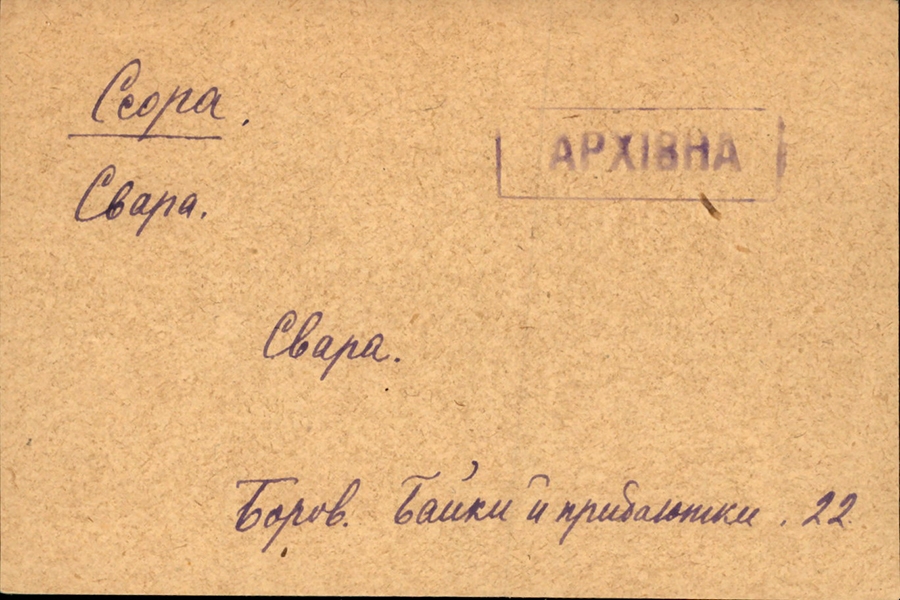 Ссора.
АРХІВНА
Свара.
Свара.
Боров. Байки й прибаютки. 22